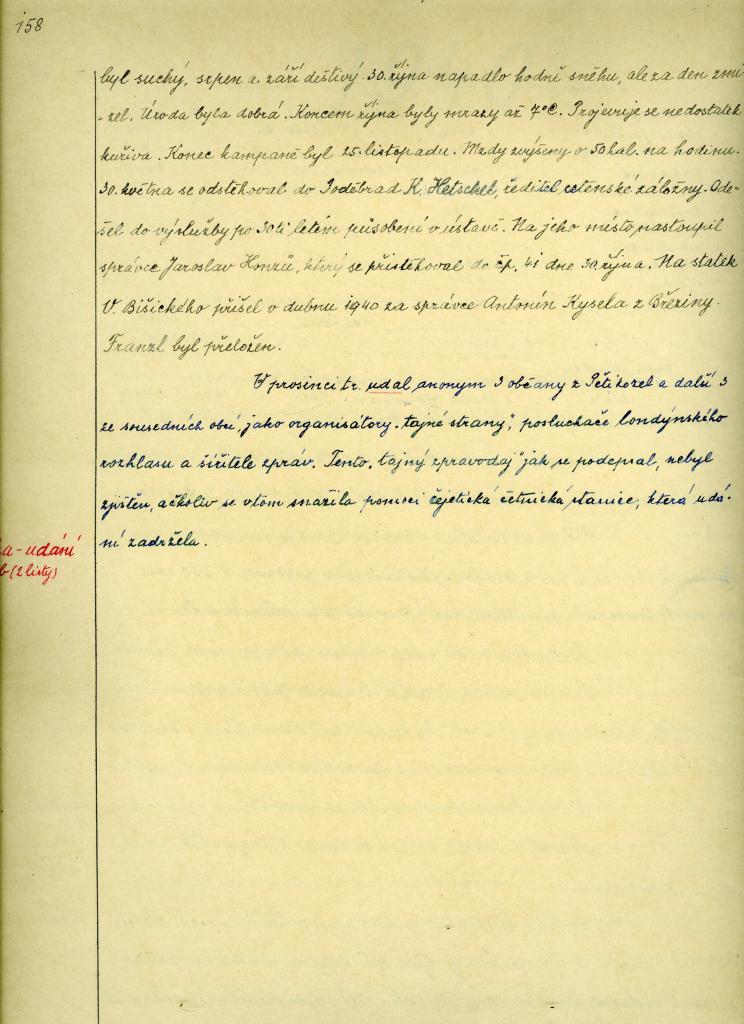 158
byl suchý, srpen a září deštivý. 30. října napadlo hodně sněhu, ale za den zmi-
zel. Úroda byla dobrá. Koncem října byly mrazy až 7°C. Projevuje se nedostatek
kuřiva. Konec kampaně byl 25. listopadu. Mzdy zvýšeny o 50 hal. na hodinu.
30. května se odstěhoval do Poděbrad K. Hetschel, ředitel cetenské záložny. Ode-
šel do výslužby po 30ti letém působení v ústavě. Na jeho místo nastoupil
správce Jaroslav Honzů, který se přistěhoval do čp. 41 dne 30. října. Na statek
V. Bišického přišel v dubnu 1940 za správce Antonín Kysela z Březiny.
Franzl byl přeložen.
V prosinci t.r. udal anonym 3 občany z Pětikozel a další 3
ze sousedních obcí, jako organisátory "tajné strany", posluchače londýnského
rozhlasu a šiřitele zpráv. Tento "tajný zpravodaj" jak se podepsal, nebyl
zjištěn, ačkoliv se v tom snažila pomoci čejetická četnická stanice, která udá-
ní zadržela.
a-udání
b (2 listy)